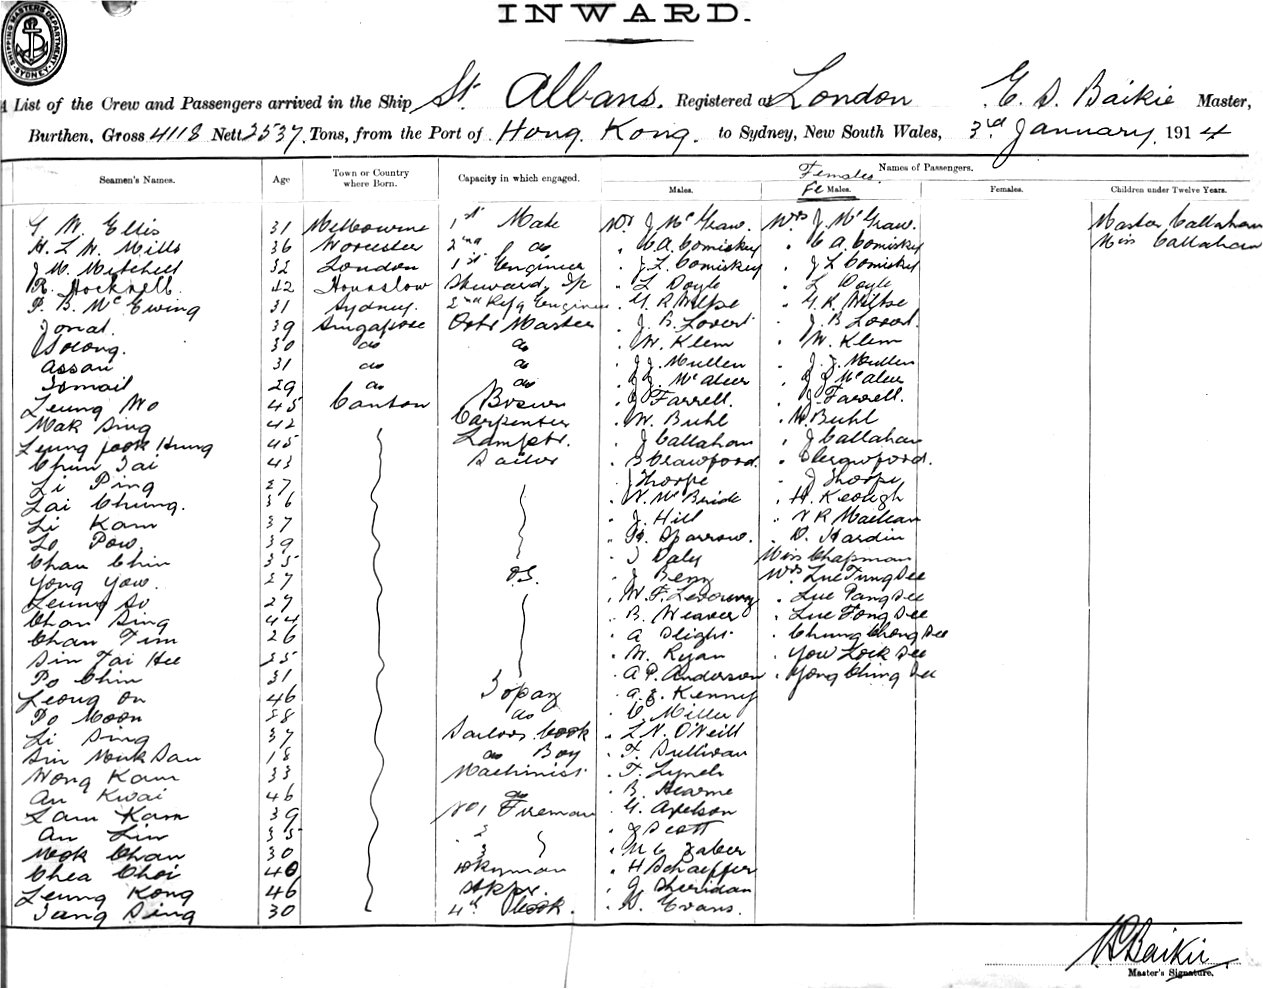 SHIPPING MASTERS DEPARTMENT SYDNEY
INWARD.
A List of the Crew and Passengers arrived in the Ship St. Albans. Registered at London E. S. Baikie Master,
Burthen, Gross 4118 Nett 2537 Tons, from the Port of Hong Kong. to Sydney, New South Wales, 3rd January 1914
Seamen's Names. Age Town or Country where Born. Capacity in which engaged. Names of Passengers.
Males. Females. Fe Males. Females. Children under Twelve Years.
G. W. Ellis 31 Melbourne 1st Mate Mr J McGraw. Mrs J McGraw. Master Callahan
H. L. W. Mills 36 Worcester 2nd do " C A. Comiskey " C A. Comiskey Miss Callahan
J M. Mitchell 32 London 1st Engineer " J L. Comiskey " J L Comiskey
R. Hocknell 42 Hounslow Steward " L Doyle " L Doyle
F. B. McEwing 31 Sydney. 2nd Refg Engineer
Jonat. 39 Singapore Qr Master
30 do do " W. Klem " W. Klem
Assan 31 do do " J J. Mullen " J. J. Mullen
Ismail 29 do do " J J. McAleer " J J McAleer
Leung Wo 45 Canton Bosun " J Farrell. " J. Farrell.
Mak Sing 42 Carpenter " W. Buhl " W Buhl
Leung Hung 45 Lamptr. " J Callahan " J Callahan
Chun Tai 43 Sailor " S Crawford. " S Crawford.
Li Ping 27 " J Thorpe " J Thorpe
Lai Chung. 36 " N. McBride " H. Keough
Li Kam 37 " J. Hill
Lo Pow 39 " Sparrow. " D. Hardin
Chan Chin 35 " T Daly Miss Chapman
Yong Yow. 27 O.S. " J Benz Mrs Lue Tung See
Leung So 27 " W. F. " Lue Pang See
Chan Sing 44 " B. Weaver " Lue Fong See
Chan Tim 26 " A Slight " Chung Chong See
Sin Tai Hee 35 " W. Ryan " Yow Lock See
Po Chin 31 " A P. Anderson " Yong Ching See
Leong On 46 Topaz " A. J. Kenny
Po Moon 28 do " C. Miller
Li Sing 37 Sailors Cook " L. N. O'Neill
Sin Mouk San 18 do Boy " T. Sullivan
Wong Kam 33 Machinist " T. Lynch
Au Kwai 46 do " B. Hearne
Lam Kam 39 No 1 Fireman " G. Axelson
Au Lin 35 2 " J Scott
Mok Chan 30 3 " M C Faber
Chea Choi 40 Dkyman " H Schaeffer
Leung Kong 46 Stkpr. " J. Sheridan
Tang Sing 30 4th Cook. " S. Evans.
Baikie
Master's Signature.